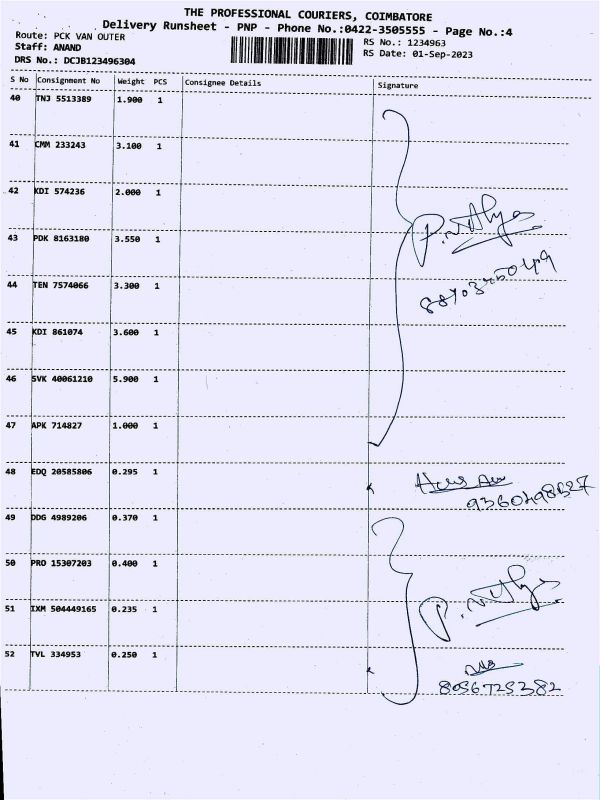 THE PROFESSIONAL COURIERS, COIMBATORE
Delivery Runsheet - PNP - Phone No.:0422-3505555 - Page No.:4
Route: PCK VAN OUTER
Staff: ANAND
DRS No.: DCJB123496304
RS No.: 1234963
RS Date: 01-Sep-2023
S No Consignment No Weight PCS Consignee Details Signature
40 TNJ 5513389 1.900 1
41 CMM 233243 3.100 1
42 KDI 574236 2.000 1
43 PDK 8163180 3.550 1
44 TEN 7574066 3.300 1
45 KDI 861074 3.600 1
46 SVK 40061210 5.900 1
47 APK 714827 1.000 1
48 EDQ 20585806 0.295 1
49 DDG 4989206 0.370 1
50 PRO 15307203 0.400 1
51 IXM 504449165 0.235 1
52 TVL 334953 0.250 1
8056725382